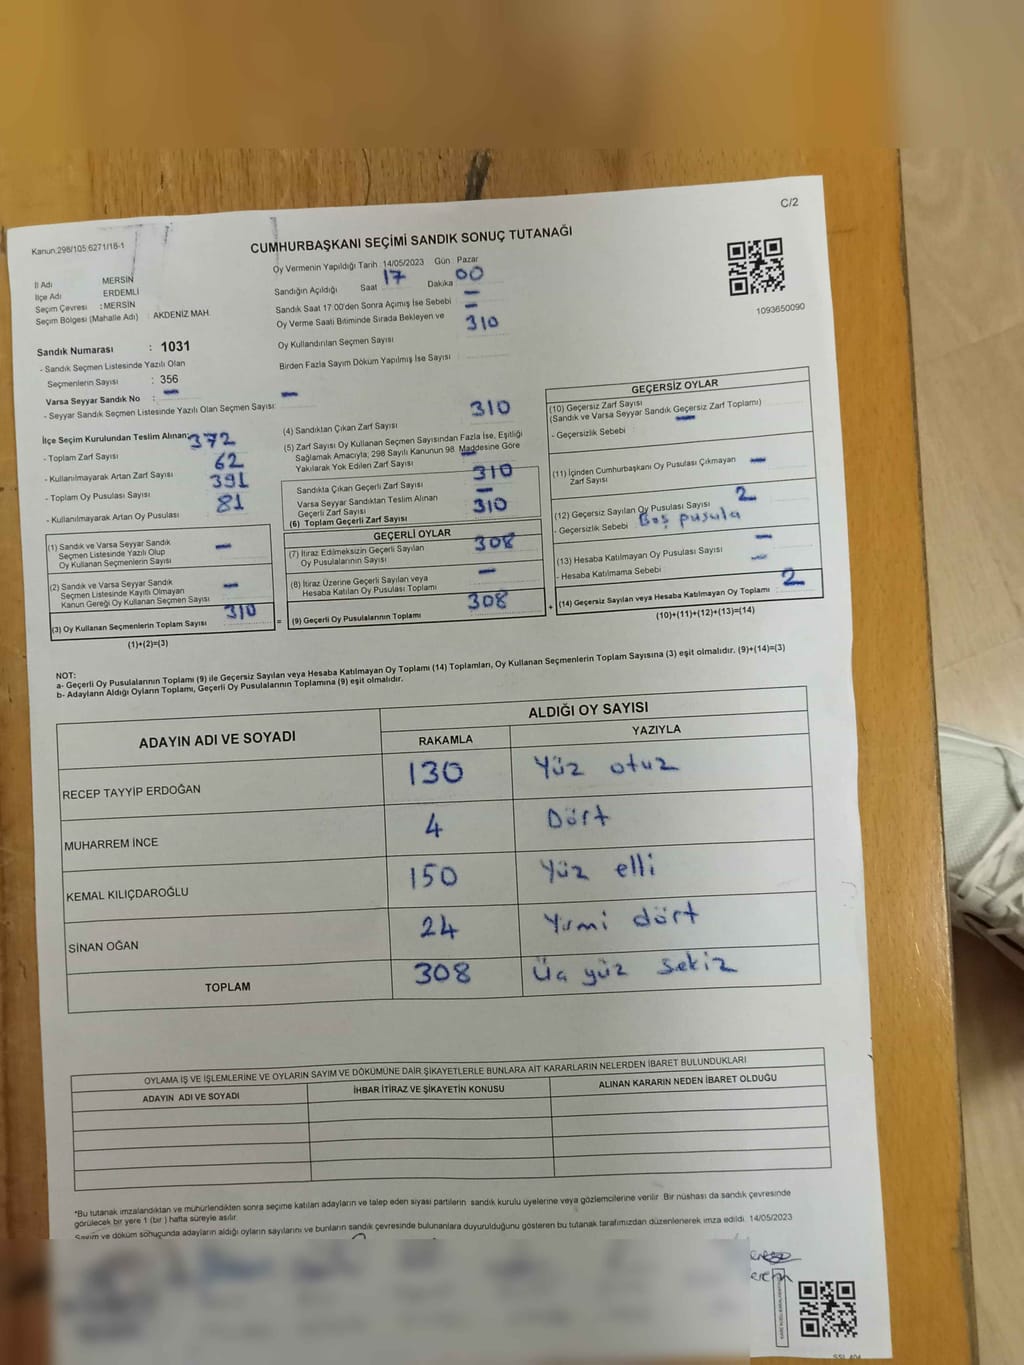 C/2
Kanun:298/105.6271/18-1
CUMHURBAŞKANI SEÇİMİ SANDIK SONUÇ TUTANAĞI
İl Adı MERSİN
İlçe Adı ERDEMLİ
Seçim Çevresi : MERSİN
Seçim Bölgesi (Mahalle Adı) : AKDENİZ MAH.
Oy Vermenin Yapıldığı Tarih 14/05/2023 Gün Pazar
Sandığın Açıldığı Saat 17 Dakika 00
Sandık Saat 17:00'den Sonra Açımış İse Sebebi –
Oy Verme Saati Bitiminde Sırada Bekleyen ve –
Oy Kullandırılan Seçmen Sayısı 310
Birden Fazla Sayım Döküm Yapılmış İse Sayısı
1093650090
Sandık Numarası : 1031
- Sandık Seçmen Listesinde Yazılı Olan
Seçmenlerin Sayısı : 356
Varsa Seyyar Sandık No : –
- Seyyar Sandık Seçmen Listesinde Yazılı Olan Seçmen Sayısı: –
İlçe Seçim Kurulundan Teslim Alınan:
- Toplam Zarf Sayısı 372
- Kullanılmayarak Artan Zarf Sayısı 62
- Toplam Oy Pusulası Sayısı 391
- Kullanılmayarak Artan Oy Pusulası 81
(1) Sandık ve Varsa Seyyar Sandık
Seçmen Listesinde Yazılı Olup
Oy Kullanan Seçmenlerin Sayısı –
(2) Sandık ve Varsa Seyyar Sandık
Seçmen Listesinde Kayıtlı Olmayan
Kanun Gereği Oy Kullanan Seçmen Sayısı –
(3) Oy Kullanan Seçmenlerin Toplam Sayısı 310
(1)+(2)=(3)
(4) Sandıktan Çıkan Zarf Sayısı 310
(5) Zarf Sayısı Oy Kullanan Seçmen Sayısından Fazla İse, Eşitliği
Sağlamak Amacıyla, 298 Sayılı Kanunun 98. Maddesine Göre
Yakılarak Yok Edilen Zarf Sayısı –
Sandıkta Çıkan Geçerli Zarf Sayısı 310
Varsa Seyyar Sandıktan Teslim Alınan
Geçerli Zarf Sayısı –
(6) Toplam Geçerli Zarf Sayısı 310
GEÇERLİ OYLAR
(7) İtiraz Edilmeksizin Geçerli Sayılan
Oy Pusulalarının Sayısı 308
(8) İtiraz Üzerine Geçerli Sayılan veya
Hesaba Katılan Oy Pusulası Toplamı –
= (9) Geçerli Oy Pusulalarının Toplamı 308
GEÇERSİZ OYLAR
(10) Geçersiz Zarf Sayısı
(Sandık ve Varsa Seyyar Sandık Geçersiz Zarf Toplamı) –
- Geçersizlik Sebebi
(11) İçinden Cumhurbaşkanı Oy Pusulası Çıkmayan
Zarf Sayısı –
(12) Geçersiz Sayılan Oy Pusulası Sayısı 2
- Geçersizlik Sebebi Boş pusula
(13) Hesaba Katılmayan Oy Pusulası Sayısı –
- Hesaba Katılmama Sebebi –
+ (14) Geçersiz Sayılan veya Hesaba Katılmayan Oy Toplamı 2
(10)+(11)+(12)+(13)=(14)
NOT:
a- Geçerli Oy Pusulalarının Toplamı (9) ile Geçersiz Sayılan veya Hesaba Katılmayan Oy Toplamı (14) Toplamları, Oy Kullanan Seçmenlerin Toplam Sayısına (3) eşit olmalıdır. (9)+(14)=(3)
b- Adayların Aldığı Oyların Toplamı, Geçerli Oy Pusulalarının Toplamına (9) eşit olmalıdır.
ADAYIN ADI VE SOYADI ALDIĞI OY SAYISI
RAKAMLA YAZIYLA
RECEP TAYYİP ERDOĞAN 130 Yüz otuz
MUHARREM İNCE 4 Dört
KEMAL KILIÇDAROĞLU 150 Yüz elli
SİNAN OĞAN 24 Yirmi dört
TOPLAM 308 Üç yüz sekiz
OYLAMA İŞ VE İŞLEMLERİNE VE OYLARIN SAYIM VE DÖKÜMÜNE DAİR ŞİKAYETLERLE BUNLARA AİT KARARLARIN NELERDEN İBARET BULUNDUKLARI
ADAYIN ADI VE SOYADI İHBAR İTİRAZ VE ŞİKAYETİN KONUSU ALINAN KARARIN NEDEN İBARET OLDUĞU
*Bu tutanak imzalandıktan ve mühürlendikten sonra seçime katılan adayların ve talep eden siyasi partilerin sandık kurulu üyelerine veya gözlemcilerine verilir. Bir nüshası da sandık çevresinde
görülecek bir yere 1 (bir) hafta süreyle asılır.
Sayım ve döküm sonucunda adayların aldığı oyların sayılarını ve bunların sandık çevresinde bulunanlara duyurulduğunu gösteren bu tutanak tarafımızdan düzenlenerek imza edildi. 14/05/2023